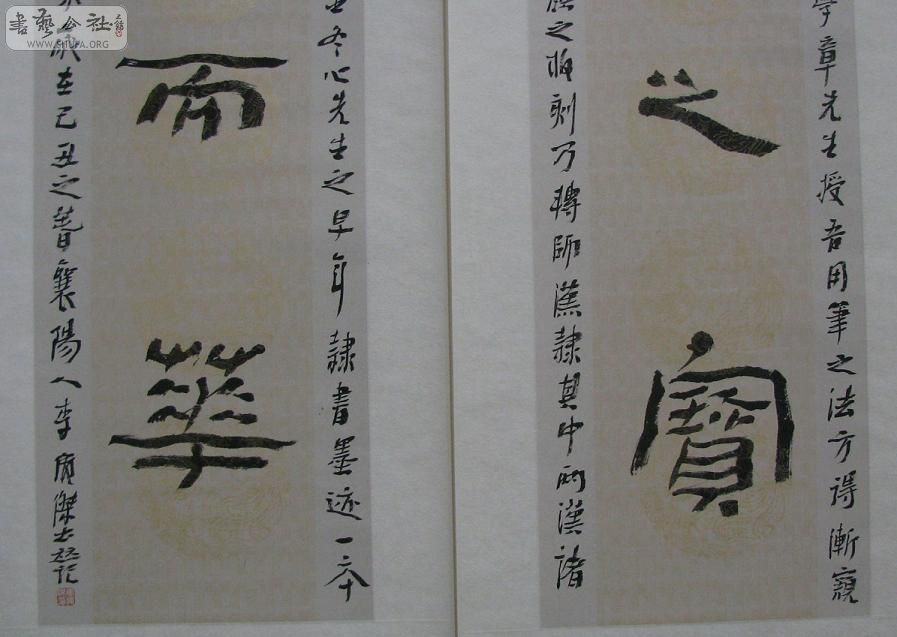 章先生授吾用筆之法方得漸窺
之寶
之板刻乃轉師漢隸其中兩漢諸
冬心先生之早年隸書墨迹一本
而華
歲在己丑之春襄陽人李廣傑
書藝公社
WWW.SHUFA.ORG